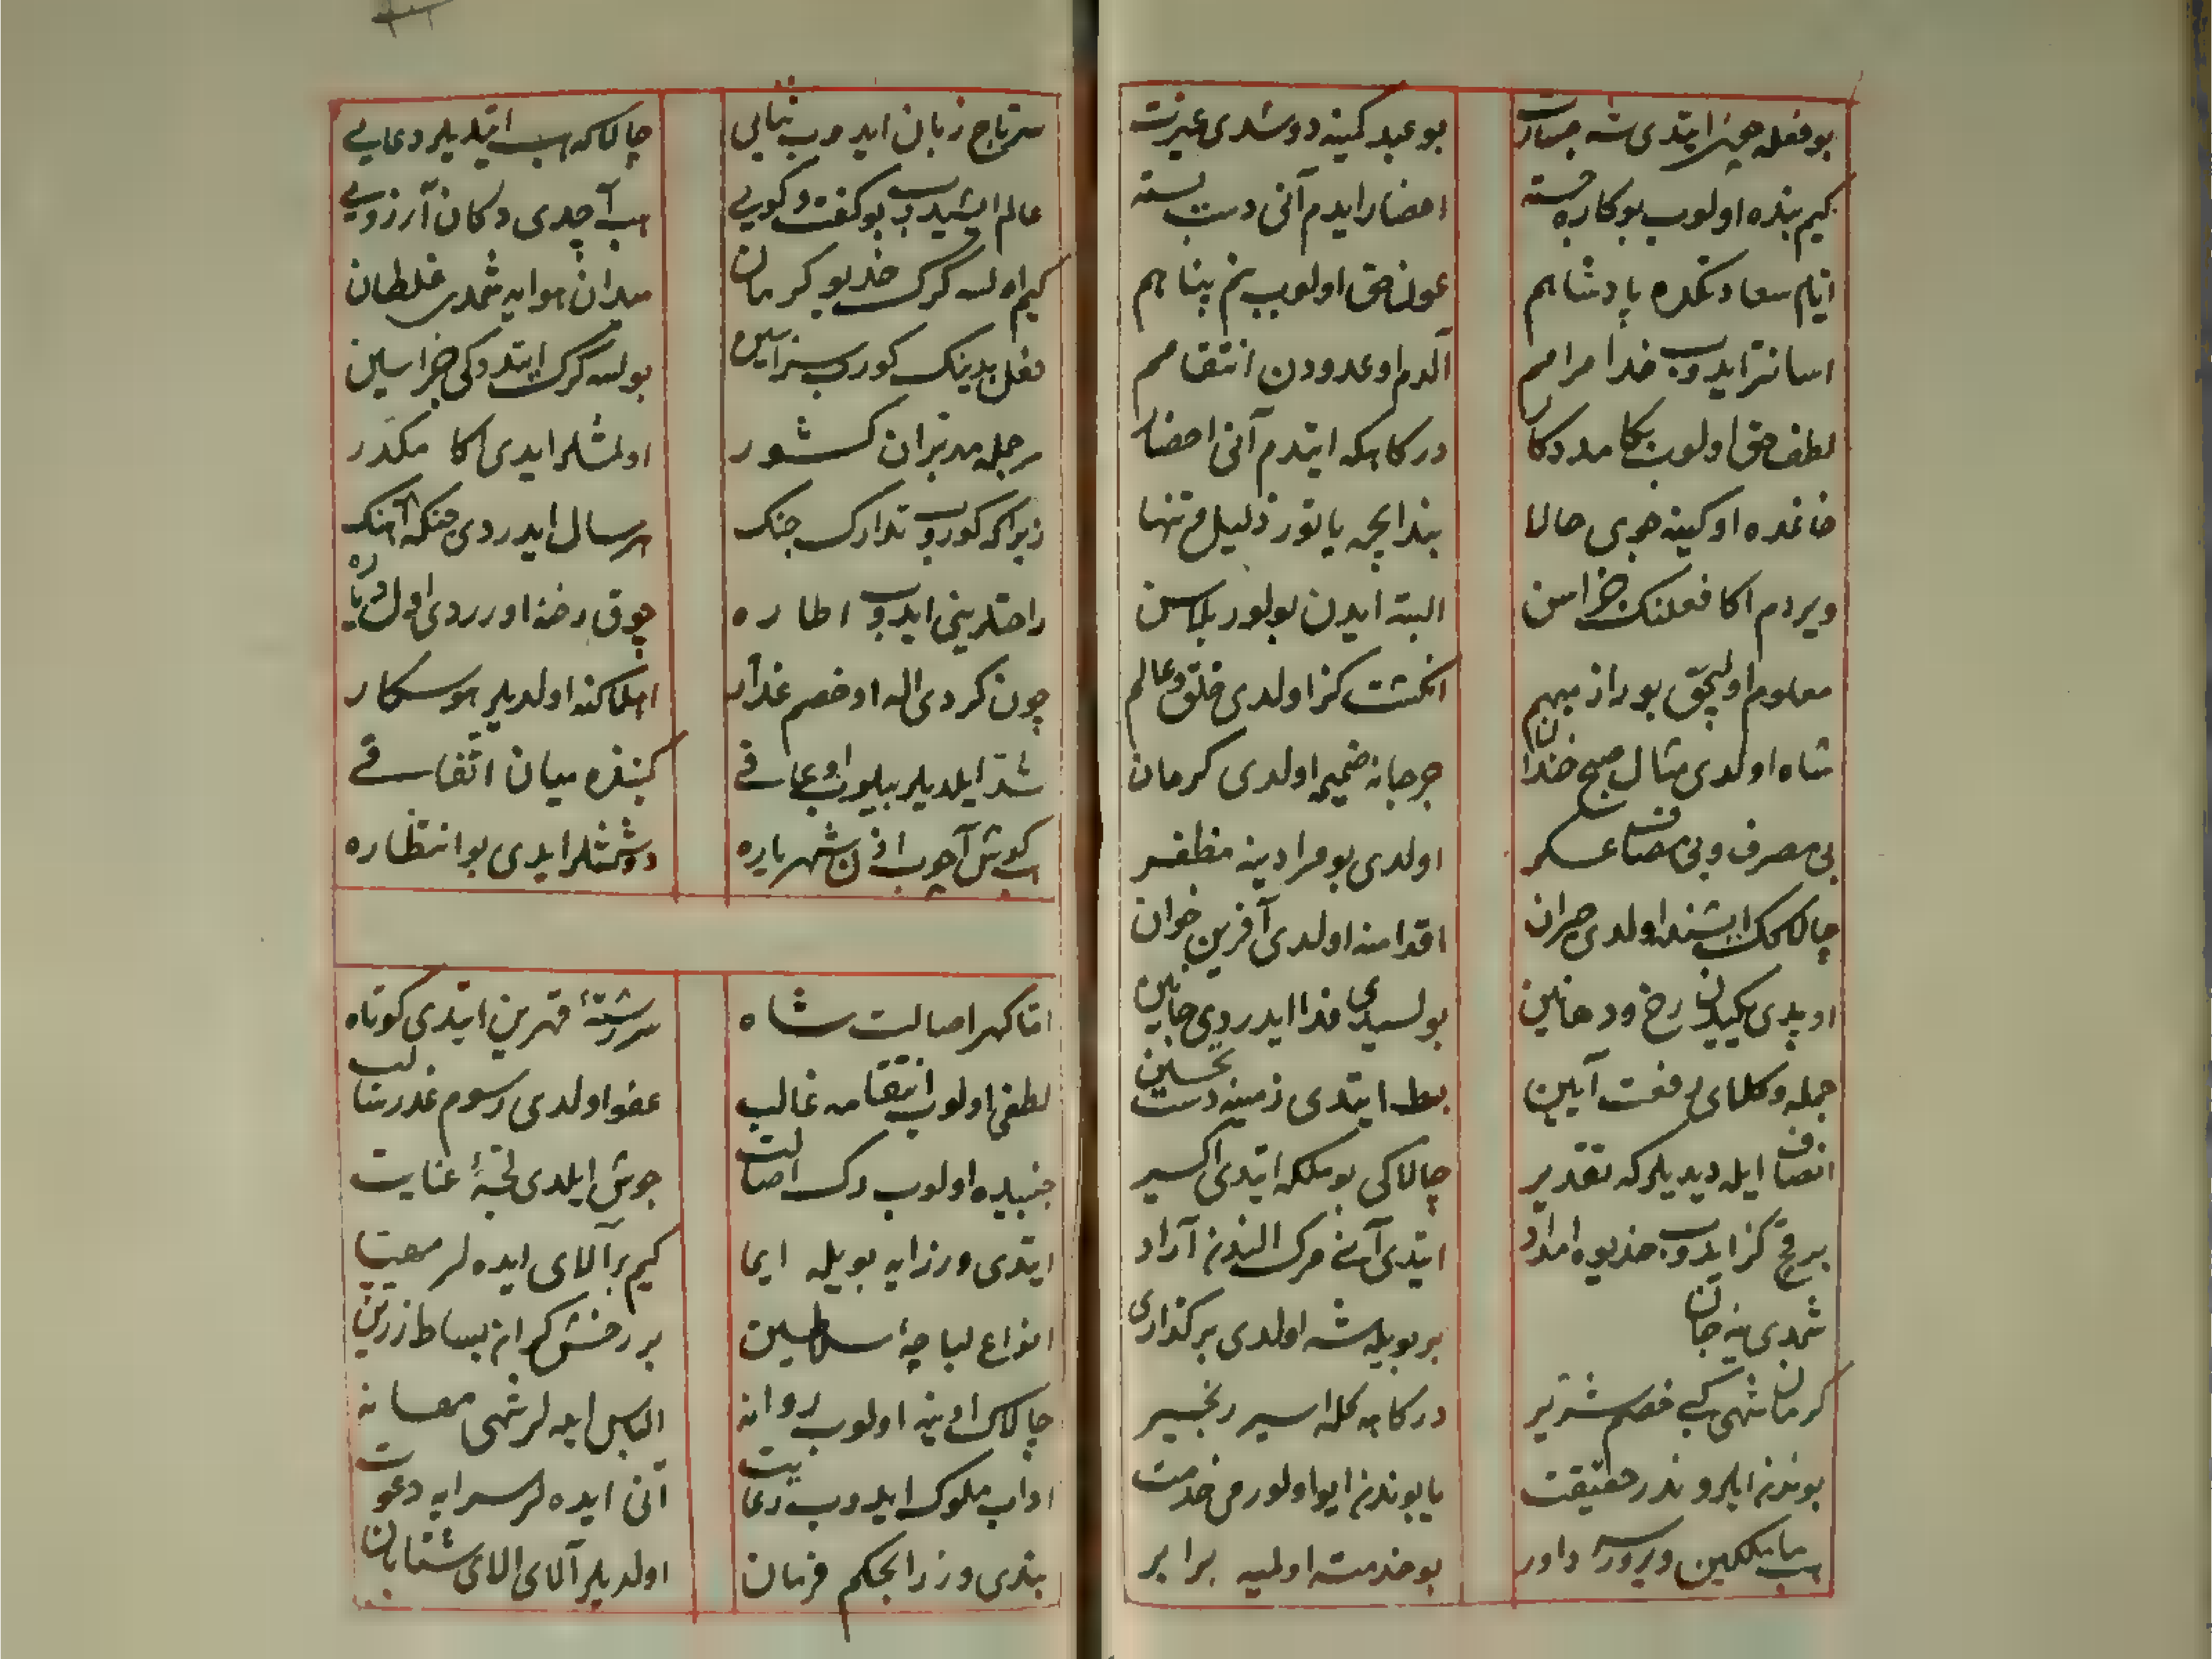 بو فعله چون ایتدی شه جسارت
بو عبد کمینه دوشدی غیرت
کیم بنده اولوب بو کاره خسته
احضار ایدم آنی دست بسته
ایام سعادتکده پادشاهم
عون حق اولوب بنم پناهم
اسانتر ایدوب خدا مرامم
آلدم او عدودن انتقامم
لطف حق اولوب بکا مددکار
درکاهکه ایتدم آنی احضار
خانمده او کینه جوی حالا
بند ایچره یاتور ذلیل و تنها
ویردم اکا فعلنک جزاسن
البته ایدن بولور بلاسن
معلوم اولیجق بو راز مبهم
انکشت کز اولدی خلق و عالم
شاه اولدی مثال صبح خندان
جرجانه ضمیمه اولدی کرمان
بی مصرف و بی مصاف عسکر
اولدی بو مرادینه مظفر
چالاکک ایشنه اولدی حیران
اقدامنه اولدی آفرین خوان
اوپدی یکیدن رخ و دهانین
بولسیدی فدا ایدردی جانین
جمله وکلای رفعت آیین
بسط ایتدی زمینه دست تحسین
انصاف ایله دیدیلر که تقدیر
چالاکی بو ملکه ایتدی اکسیر
بر قچ کز ایدوب خدیوه امداد
ایتدی آنی مرک الندن آزاد
شمدی ینه جان
بر بویله شه اولدی برکذاری
کرمان شهی کبی خصم شریر
درکاهه کله اسیر زنجیر
بوندن ایلرو ندر حقیقت
یا بوندن ایو اولور می خدمت
هب مالکین ویرورسه داور
بو خدمته اولمیه برابر
سرتاج زبان ایدوب ثنایی
چالاکه هب ایتدیلر دعایی
عالم ایشیدوب بو کفت و کویی
هب آچدی دکان آرزویی
کیم اولسه کرک خدیو کرمان
میدان هوایه شمدی غلطان
فعل بدینک کوروب سزاسین
بولسه کرک ایتدوکی جزاسین
هر جمله مدبران کشور
اولمشلر ایدی اکا مکدر
زیرا که کوروب تدارک جنک
هر سال ایدردی جنکه آهنک
راحتلرینی ایدوب اطاره
چوق رخنه اوردی اول دیاره
چون کردی اله او خصم غدار
اهلاکنه اولدیلر هوسکار
شدت ایلدیلر بیلوب وعاقی
کبنده میان اتفاقی
هب کوش آچوب اذن شهریاره
دوشمشلر ایدی بو انتظاره
اما کهر اصالت شاه
سررشتهٔ قهرین ایتدی کوتاه
لطفی اولوب انتقامه غالب
عفو اولدی رسوم غدر
جنبیده اولوب رک اصالت
جوش ایلدی لجهٔ عنایت
ایتدی وزرایه بویله ایما
کیم بر آلای ایده لر مهیا
انواع لباچهٔ سلاطین
بر رخش کران بساط زرین
چالاک اوینه اولوب روانه
الباس ایده لر شهی
اداب ملوک ایدوب رعایت
آنی ایده لر سرایه دعوت
بندی وزرا بحکم فرمان
اولدیلر آلای الای شتابان